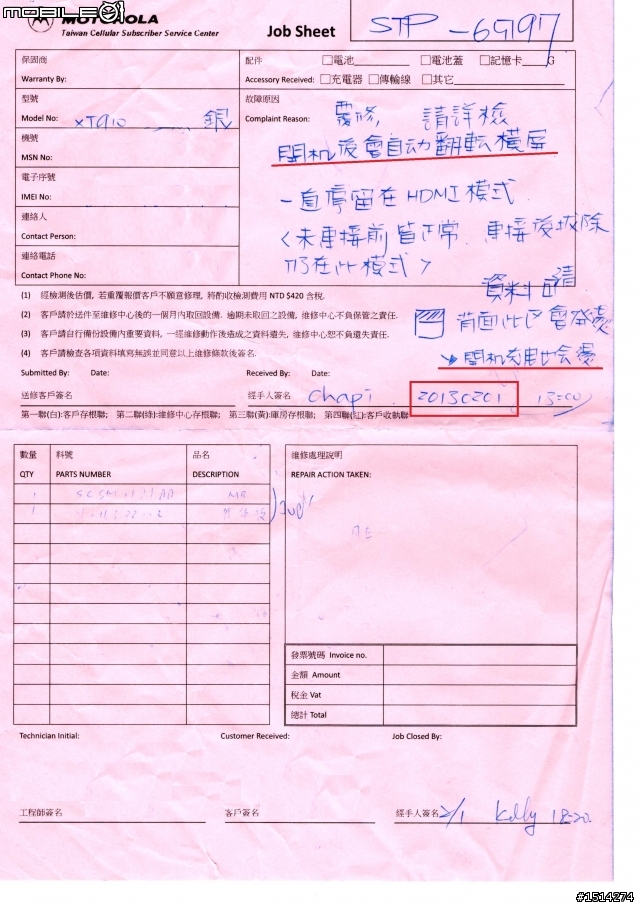 mobile01
MOTOROLA
Taiwan Cellular Subscriber Service Center
Job Sheet
STP-65197
保固商
Warranty By:
配件 □電池 □電池蓋 □記憶卡 G
Accessory Received: □充電器 □傳輸線 □其它
型號
Model No: XT910 銀
故障原因
Complaint Reason: 覆修, 請詳檢
開机後會自动翻転橫屏
機號
MSN No:
電子序號
IMEI No:
一直停留在HDMI模式
連絡人
Contact Person:
<未連接前皆正常. 連接後拔除
連絡電話
Contact Phone No:
仍在此模式>
資料可清
(1) 經檢測後估價, 若重覆報價客戶不願意修理, 將酌收檢測費用 NTD $420 含稅.
(2) 客戶請於送件至維修中心後的一個月內取回設備. 逾期未取回之設備, 維修中心不負保管之責任.
背面此区會發燙
(3) 客戶請自行備份設備內重要資料, 一經維修動作後造成之資料遺失, 維修中心恕不負遺失責任.
(4) 客戶請檢查各項資料填寫無誤並同意以上維修條款後簽名.
Submitted By: Date:
Received By: Date:
送修客戶簽名
經手人簽名 Chapi 20130201 13:00
第一聯(白):客戶存根聯; 第二聯(綠):維修中心存根聯; 第三聯(黃):庫房存根聯; 第四聯(紅):客戶收執聯
數量 料號 品名
QTY PARTS NUMBER DESCRIPTION
維修處理說明
REPAIR ACTION TAKEN:
1 MB
1
發票號碼 Invoice no.
金額 Amount
稅金 Vat
總計 Total
Technician Initial:
Customer Received:
Job Closed By:
工程師簽名
客戶簽名
經手人簽名 2/1 Kelly 18:20.
#1514274